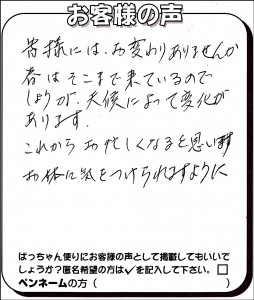 お客様の声
皆様には、お変りありませんか
春はそこまで来ているので
しょうが、天候によって変化が
あります.
これから お忙しくなると思います
お体に気をつけられますように
ばっちゃん便りにお客様の声として掲載してもいいで
しょうか？匿名希望の方は✓を記入して下さい。□
ペンネームの方（　　　　　　　　　　）